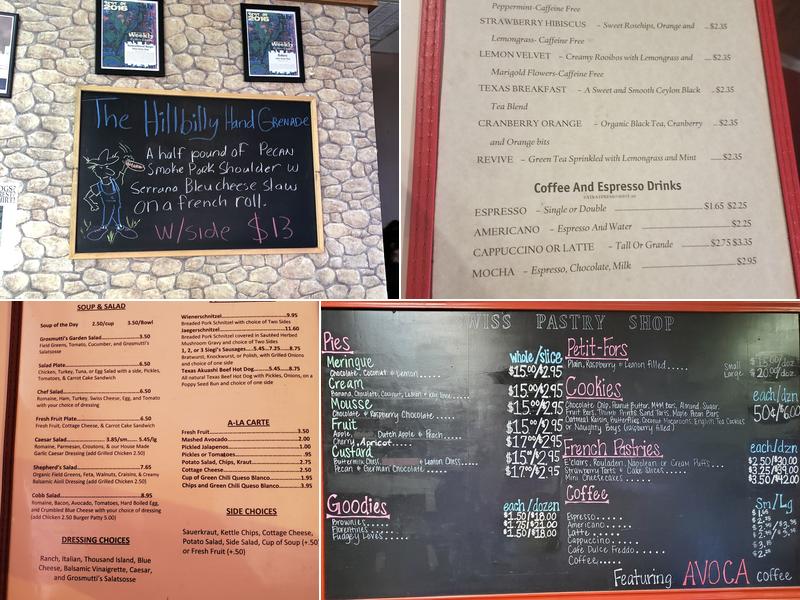 BEST OF
2016
Weekly
BEST OF
2016
Weekly
The Hillbilly Hand GRENADE
A half pound of PECAN
Smoke Pork Shoulder w
Serrano Bleucheese slaw
on a french roll.
w/side $13
Peppermint-Caffeine Free
STRAWBERRY HIBISCUS - Sweet Rosehips, Orange and ...$2.35
Lemongrass- Caffeine Free
LEMON VELVET - Creamy Rooibos with Lemongrass and ...$2.35
Marigold Flowers-Caffeine Free
TEXAS BREAKFAST - A Sweet and Smooth Ceylon Black ...$2.35
Tea Blend
CRANBERRY ORANGE - Organic Black Tea, Cranberry ...$2.35
and Orange bits
REVIVE - Green Tea Sprinkled with Lemongrass and Mint ...$2.35
Coffee And Espresso Drinks
ESPRESSO - Single or Double $1.65 $2.25
AMERICANO - Espresso And Water $2.25
CAPPUCCINO OR LATTE - Tall Or Grande $2.75 $3.35
MOCHA - Espresso, Chocolate, Milk $2.95
SOUP & SALAD
Soup of the Day 2.50/cup 3.50/Bowl
Grosmutti's Garden Salad 3.50
Field Greens, Tomato, Cucumber, and Grosmutti's
Salatsosse
Salad Plate 6.50
Chicken, Turkey, Tuna, or Egg Salad with a side, Pickles,
Tomatoes, & Carrot Cake Sandwich
Chef Salad 6.50
Romaine, Ham, Turkey, Swiss Cheese, Egg, and Tomato
with your choice of dressing
Fresh Fruit Plate 6.50
Fresh Fruit, Cottage Cheese, & Carrot Cake Sandwich
Caesar Salad 3.85/sm 5.45/lg
Romaine, Parmesan, Croutons, & our House Made
Garlic Caesar Dressing (add Grilled Chicken 2.50)
Shepherd's Salad 7.65
Organic Field Greens, Feta, Walnuts, Craisins, & Creamy
Balsamic Aioli Dressing (add Grilled Chicken 2.50)
Cobb Salad 8.95
Romaine, Bacon, Avocado, Tomatoes, Hard Boiled Egg,
and Crumbled Blue Cheese with your choice of dressing
(add Chicken 2.50 Burger Patty 5.00)
DRESSING CHOICES
Ranch, Italian, Thousand Island, Blue
Cheese, Balsamic Vinaigrette, Caesar,
and Grosmutti's Salatsosse
Wienerschnitzel 9.95
Breaded Pork Schnitzel with choice of Two Sides
Jaegerschnitzel 11.60
Breaded Pork Schnitzel covered in Sautéed Herbed
Mushroom Gravy and choice of Two Sides
1, 2, or 3 Siegi's Sausages 5.45...7.25...8.75
Bratwurst, Knockwurst, or Polish, with Grilled Onions
and choice of one side
Texas Akaushi Beef Hot Dog 5.45...7.75
All natural Texas Beef Hot Dog with Pickles, Onions, on a
Poppy Seed Bun and choice of one side
A-LA CARTE
Fresh Fruit 3.50
Mashed Avocado 2.00
Pickled Jalapenos 1.00
Pickles or Tomatoes .95
Potato Salad, Chips, Kraut 2.75
Cottage Cheese 2.50
Cup of Green Chili Queso Blanco 3.95
Chips and Green Chili Queso Blanco 3.95
SIDE CHOICES
Sauerkraut, Kettle Chips, Cottage Cheese,
Potato Salad, Side Salad, Cup of Soup (+.50)
or Fresh Fruit (+.50)
WISS PASTRY SHOP
Pies whole/slice
Meringue
Chocolate, Coconut & Lemon $15.00/2.95
Cream
Banana, Chocolate, Coconut, Lemon & Key lime $15.00/2.95
Mousse
Chocolate & Raspberry Chocolate $15.00/2.95
Fruit
Apple, Dutch Apple & Peach $15.00/2.95
Cherry, Apricot $17.00/2.95
Custard
Buttermilk Chess & Lemon Chess $15.00/2.95
Pecan & German Chocolate $17.00/2.95
Goodies each/dozen
Brownies $1.50/$18.00
Florentines $1.75/$21.00
Fudgey Loves $1.50/$18.00
Petit-Fors
Plain, Raspberry & Lemon filled
Small $15.00/doz.
Large $20.00/doz.
Cookies each/dzn
Chocolate Chip, Peanut Butter, M&M bars, Almond, Sugar,
Fruit Bars, Thumb Prints, Sand Tarts, Maple Bacon Bars,
Oatmeal Raisin, Butterflies, Coconut Macaroons, English Tea Cookies
or Naughty Boys (raspberry filled)
50¢/$6.00
French Pastries each/dzn
E'clairs, Rouladen, Napolean or Cream Puffs $2.50/$30.00
Strawberry Tarts & Cake Slices $3.25/$39.00
Mini Cheesecakes $3.50/$42.00
Coffee Sm/Lg
Espresso
Americano
Latte
Cappuccino
Cafe Dulce Freddo
Coffee
Featuring AVOCA coffee